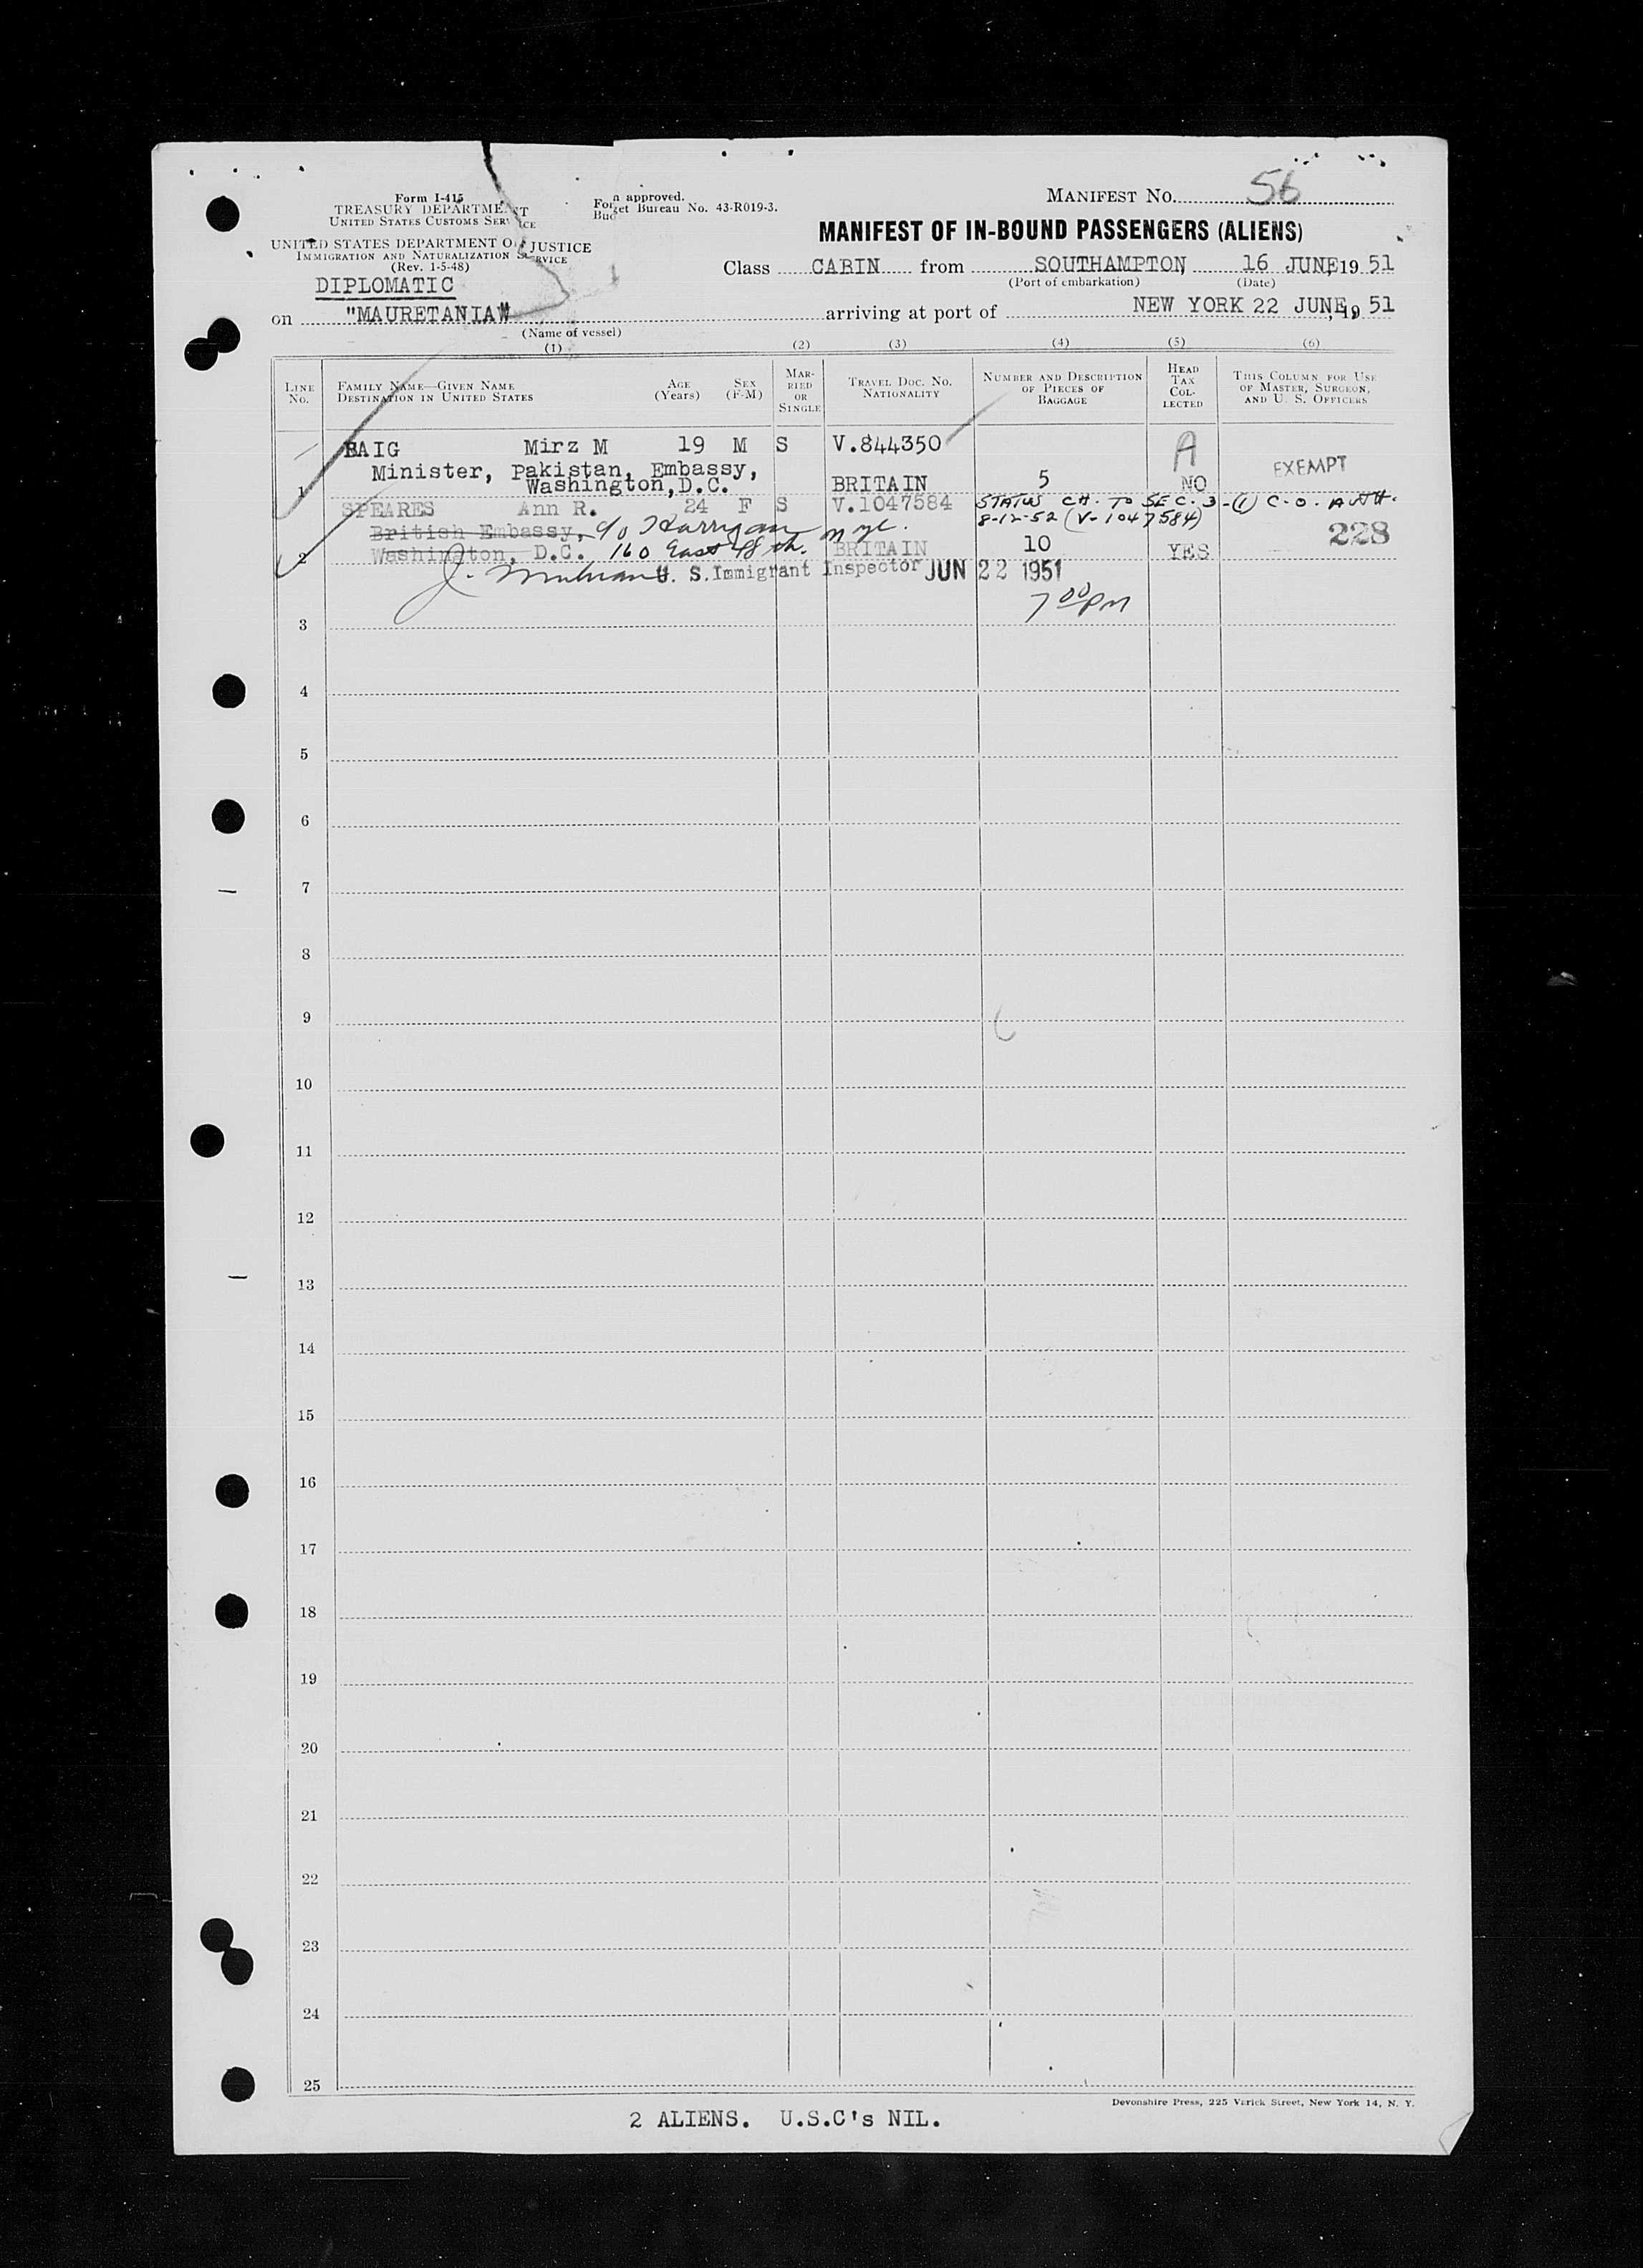 Form I-415
TREASURY DEPARTMENT
UNITED STATES CUSTOMS SERVICE
UNITED STATES DEPARTMENT OF JUSTICE
IMMIGRATION AND NATURALIZATION SERVICE
(Rev. 1-5-48)
Form approved.
Budget Bureau No. 43-R019-3.
MANIFEST NO. 56
MANIFEST OF IN-BOUND PASSENGERS (ALIENS)
Class CABIN from SOUTHAMPTON, 16 JUNE, 19 51
(Port of embarkation) (Date)
DIPLOMATIC
on "MAURETANIA" arriving at port of NEW YORK 22 JUNE, 19 51
(Name of vessel)
(1) (2) (3) (4) (5) (6)
LINE NO.
FAMILY NAME—GIVEN NAME
DESTINATION IN UNITED STATES
AGE (Years)
SEX (F-M)
MARRIED OR SINGLE
TRAVEL DOC. NO.
NATIONALITY
NUMBER AND DESCRIPTION OF PIECES OF BAGGAGE
HEAD TAX COLLECTED
THIS COLUMN FOR USE OF MASTER, SURGEON, AND U. S. OFFICERS
BAIG Mirz M 19 M S V.844350 A
Minister, Pakistan, Embassy, EXEMPT
1 Washington, D.C. BRITAIN 5 NO
SPEARES Ann R. 24 F S V.1047584 STATUS CH. TO SEC. 3-(1) C.O. AUTH.
8-12-52 (V-1047584)
British Embassy, c/o Harrigan NYC. 228
2 Washington, D.C. 160 East 48th. BRITAIN 10 YES
J. U. S. Immigrant Inspector JUN 22 1951
7 00 PM
3
4
5
6
7
8
9
10
11
12
13
14
15
16
17
18
19
20
21
22
23
24
25
Devonshire Press, 225 Varick Street, New York 14, N. Y.
2 ALIENS. U.S.C's NIL.